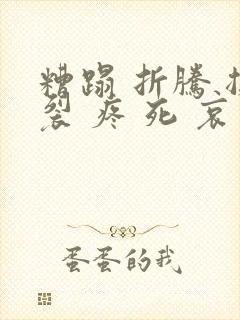 糟蹋 折騰
裂 疼 死 哀
蛋蛋的我